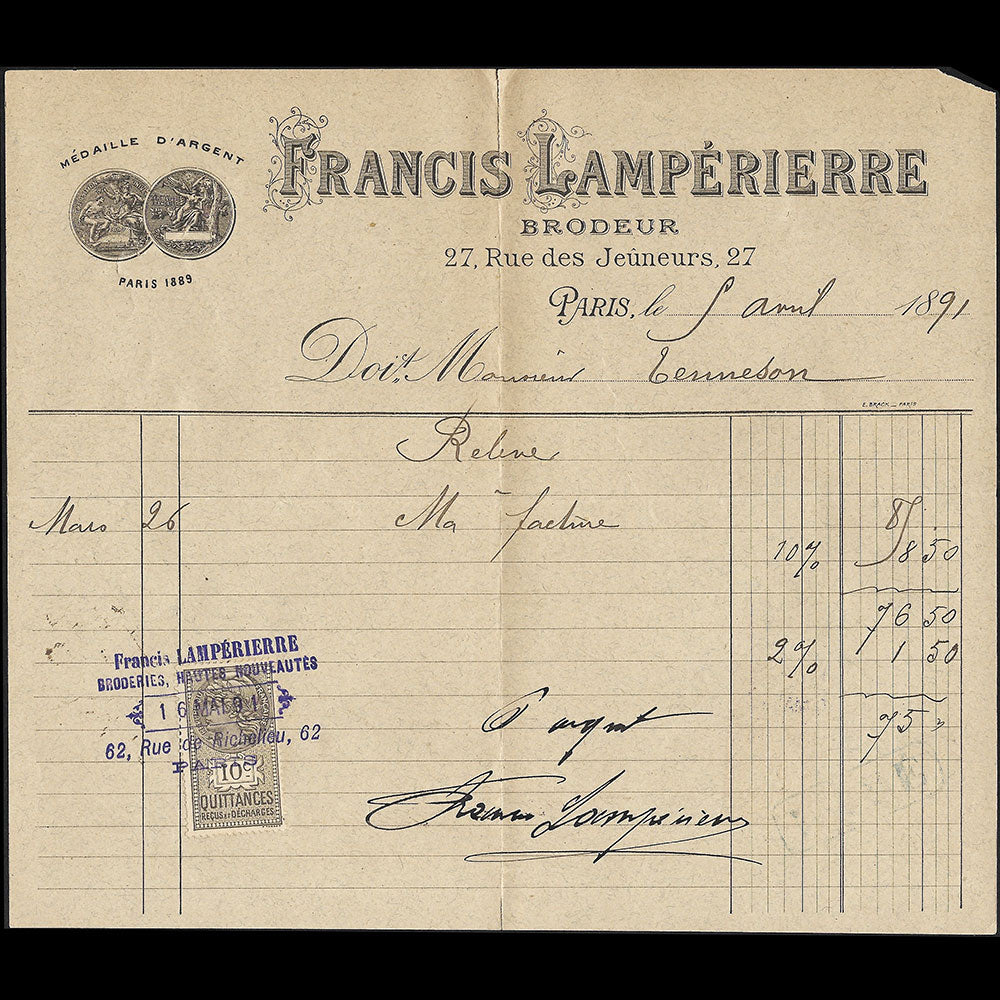 MÉDAILLE D'ARGENT
PARIS 1889
FRANCIS LAMPÉRIERRE
BRODEUR
27, Rue des Jeûneurs, 27
PARIS, le 5 avril 1891
Doit Monsieur Tenneson
E. BRACK _ PARIS
Relevé
Mars 26 Ma facture 85
10% 8 50
76 50
2% 1 50
75 "
Francis LAMPÉRIERRE
BRODERIES, HAUTES NOUVEAUTÉS
16 MAI 91
62, Rue de Richelieu, 62
PARIS
10c
QUITTANCES
REÇUS ET DÉCHARGES
Pour acquit
Francis Lampérierre